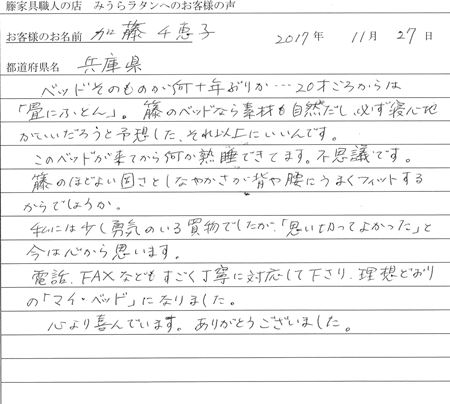 籐家具職人の店 みうらラタンへのお客様の声
お客様のお名前 加藤千恵子 2017年 11月 27日
都道府県名 兵庫県
ベッドそのものが何十年ぶりか…20才ごろからは
「畳にふとん」。籐のベッドなら素材も自然だし、必ず寝心地
がいいだろうと予想した、それ以上にいいんです。
このベッドが来てから何か熟睡できてます。不思議です。
籐のほどよい固さとしなやかさが背や腰にうまくフィットする
からでしょうか。
私には少し勇気のいる買物でしたが、「思い切ってよかった」と
今は心から思います。
電話、FAXなどもすごく丁寧に対応して下さり、理想どおり
の「マイ・ベッド」になりました。
心より喜んでいます。ありがとうございました。